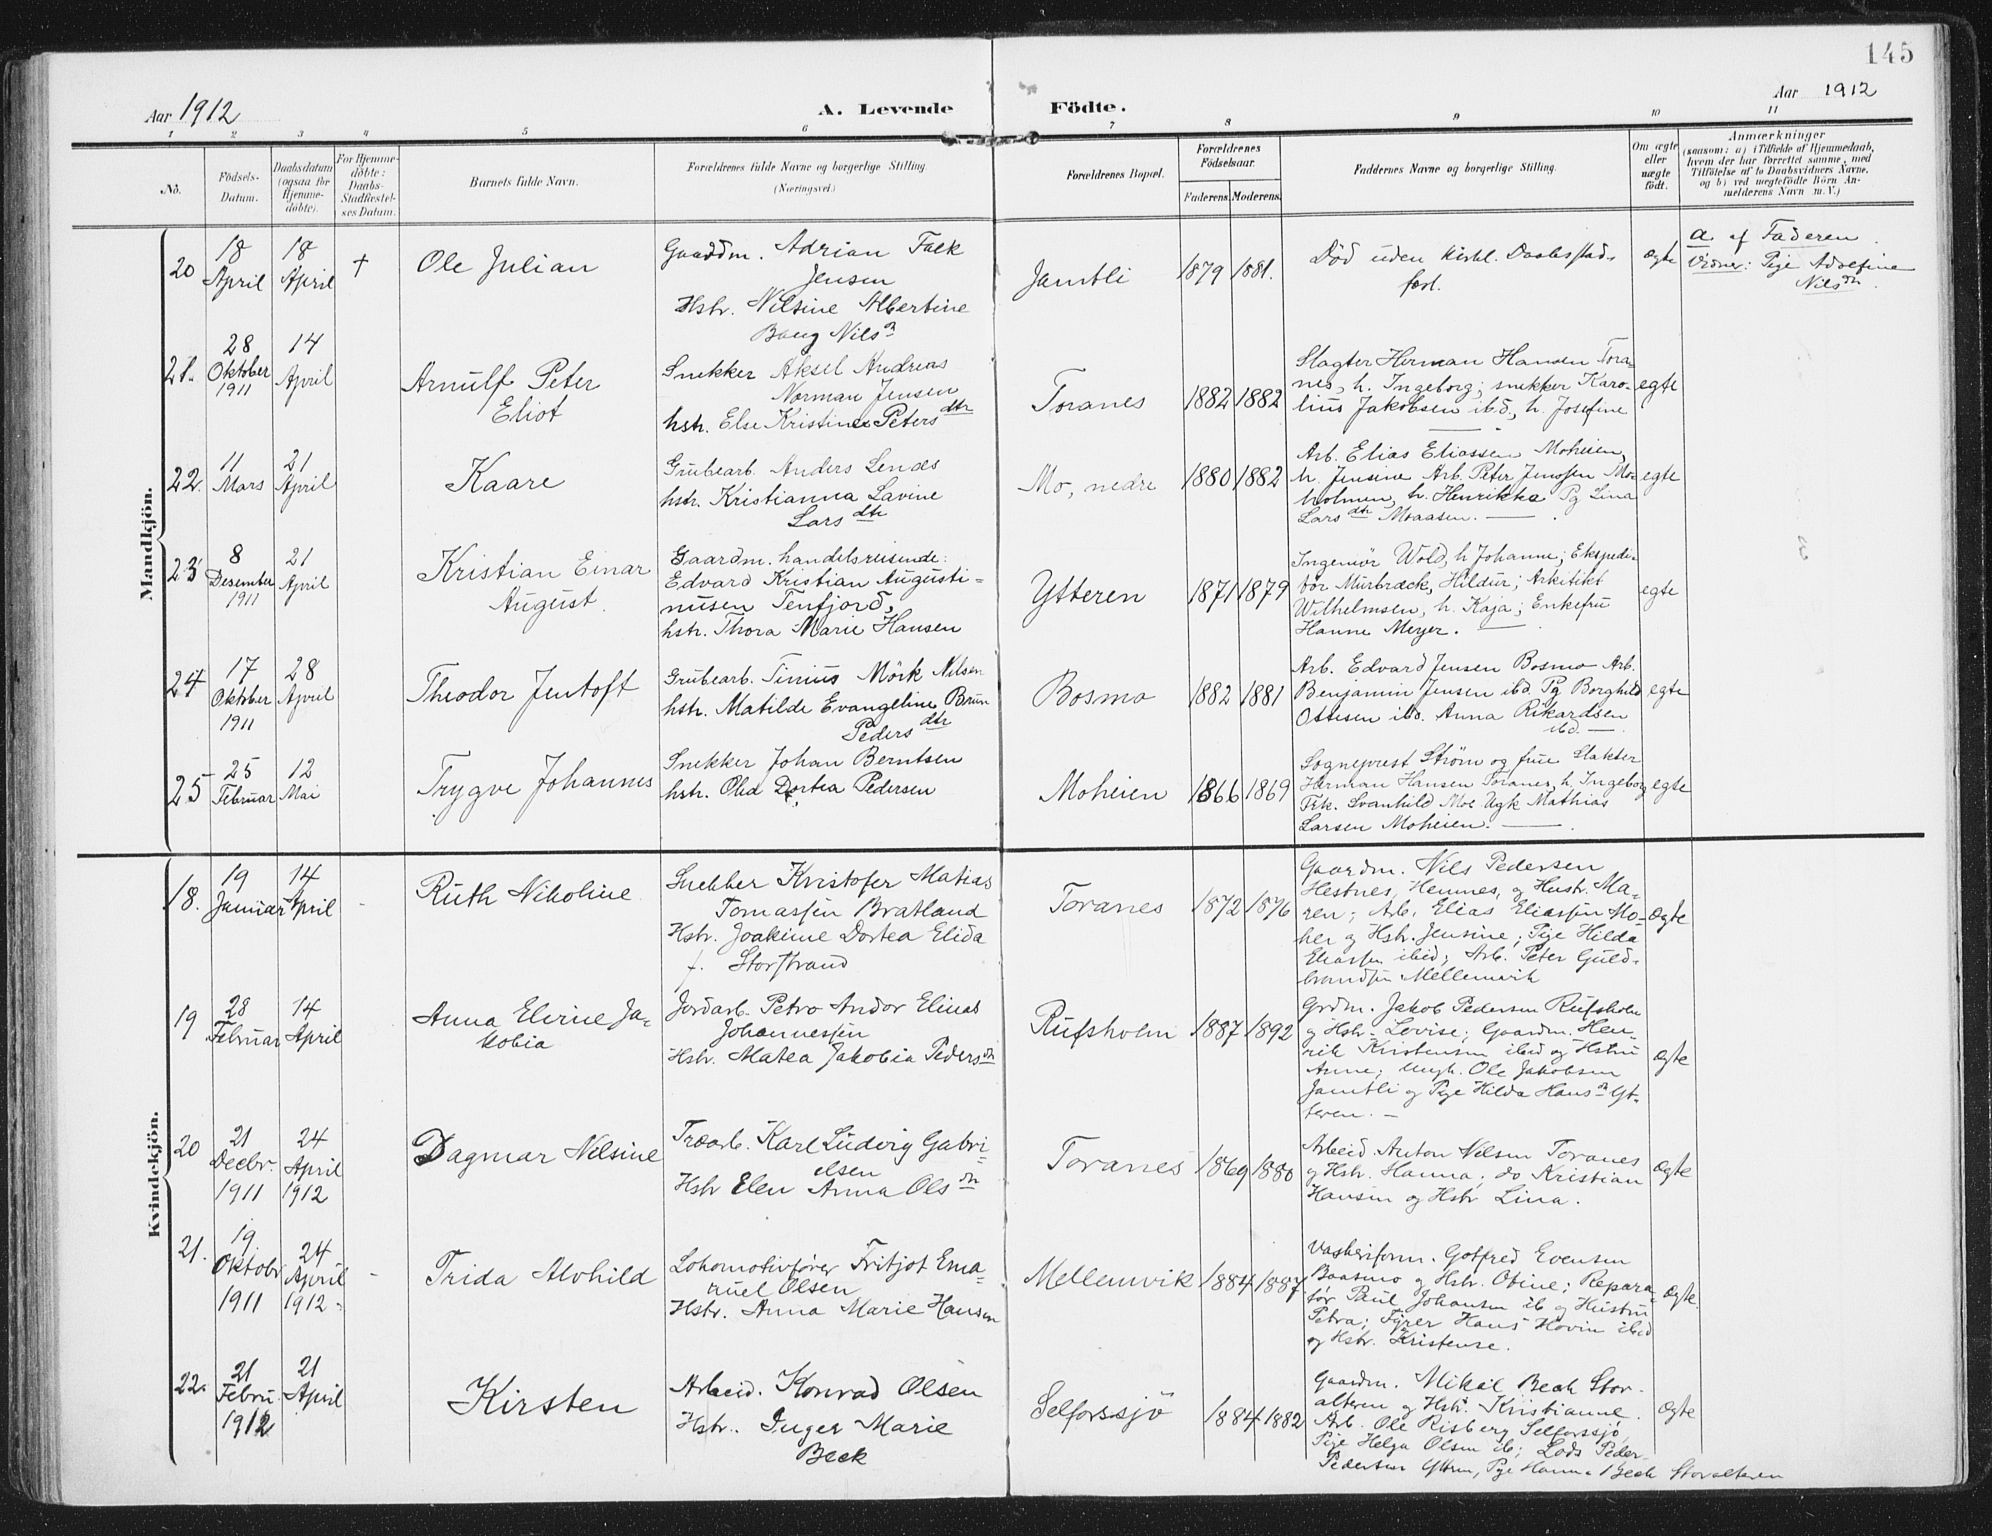 145
Aar 1912
A. Levende Födte.
Aar 1912
1 2 3 4 5 6 7 8 9 10 11
No.
Födsels-
Datum.
Daabsdatum
(ogsaa for
Hjemme-
døbte).
For Hjemme-
døbte:
Daabs-
Stadfæstel-
ses Datum.
Barnets fulde Navn.
Forældrenes fulde Navne og borgerlige Stilling.
(Næringsvei.)
Forældrenes Bopæl.
Forældrenes
Födselsaar.
Faderens. Moderens.
Faddernes Navne og borgerlige Stilling.
Om ægte
eller
uægte
født.
Anmærkninger
(saasom: a) i Tilfælde af Hjemmedaab,
hvem der har forrettet samme, med
Tilføielse af to Daabsvidners Navne,
og b) ved uægtefødte Börn An-
melderens Navn m. V.)
Mandkjön.
20
18
April
18
April
+
Ole Julian
Gaardm. Adrian Falk
Jensen
Hstr. Nilsine Albertine
Baug Nilsd
Jamtli
1879
1881.
Död uden kirkl. Daabsstad-
fæst.
ægte
a. af Faderen.
Vidner: Pige Adolfine
Nilsdtr.
21.
28
Oktober
1911
14
April
Arnulf Peter
Eliot
Snekker Aksel Andreas
Norman Jensen
hstr. Else Kristine Petersdtr
Toranes
1882
1882
Slagter Herman Hansen Tora-
nes, h. Ingeborg; snekker Karo-
lius Jakobsen ibd, h. Josefine
egte
22.
11
Mars
21
April
Kaare
Grubearb. Anders Lends
hstr. Kristianna Lavine
Larsdtr
Mo, nedre
1880
1882
Arb. Elias Eliassen Moheien,
h. Jensine Arb. Peter Jenssen Mo-
holmen, h. Henrikka Pg Lina
Larsdtr Moaasen.
egte
23
8
Desember
1911
21
April
Kristian Einar
August.
Gaardm. handelsreisende:
Edvard Kristian Augusti-
nusen Tenfjord,
hstr. Thora Marie Hansen
Ytteren
1871
1879
Ingeniör Wold, h Johanne; Ekspedi-
tör Murbræck, Hildur; Arkitekt
Wilhelmsen, h. Kaja; Enkefru
Hanne Meyer.
egte
24
17
Oktober
1911
28
April
Theodor Jentoft
Grubearb. Tinius Mörk Nilsen
hstr. Matilde Evangeline Brun
Pedersdtr
Bosmo
1882
1881
Arb. Edvard Jensen Bosmo Arb.
Benjamin Jensen ibd. Pg Borghild
Ottesen ibd. Anna Rikardsen
ibd.
egte
25
25
Februar
12
Mai
Trygve Johannes
Snekker Johan Berntsen
hstr. Olea Dortea Pedersen
Moheien
1866
1869
Sogneprest Ström og frue Slakter
Herman Hansen Toranes, h. Ingeborg
Frk. Svanhild Moe Ugk Mathias
Larsen Moheien.
egte
Kvindekjön.
18.
19
Januar
14
April
Ruth Nikoline
Snekker Kristofer Matias
Tomassen Bratland
Hstr. Joakime Dortea Elida
f. Storstrand
Toranes
1872
1876
Gaardm. Nils Pedersen
Hestnes, Hemnes, og Hustr. Ma-
ren; Arb. Elias Eliassen Mo-
hei og Hstr. Jensine; Pige Hilda
Eliassen ibid; Arb. Peter Guld-
brandsen Mellemvik
ægte
19
28
Februar
14
April
Anna Elerine Ja-
kobia
Jordarb. Petro Andor Elinas
Johannessen
Hstr. Matea Jakobia Pedersdtr
Rufsholm
1887
1892
Grdm. Jakob Pedersen Rufsholm
og Hstr. Lovise; Gaardm. Hen-
rik Kristensen ibid og Hstru
Anne; Ungk. Ole Jakobsen
Jamtli og Pige Hilda Hansd Yt-
teren.
ægte
20
21
Decbr.
1911
24
April
1912
Dagmar Nilsine
Træarb. Karl Ludvig Gabri-
elsen
Hstr Elen Anna Olsdtr
Toranes
1869
1880
Arbeid. Anton Nilsen Toranes
og Hstr. Hanna; do Kristian
Hansen og Hstr Lina.
ægte
21.
19
Oktobr
1911
24
April
1912
Frida Alvhild
Lokomotivfører Fritjof Ema-
nuel Olsen
Hstr. Anna Marie Hansen
Mellemvik
1884
1887
Vaskeriform. Gotfred Evensen
Baasmo og Hstr. Otine; Repara-
tör Paul Johansen ib og Hustru
Petra; Fyrer Hans Hovin ibid
og Hstr. Kristense.
ægte.
22.
21
Febru
1912
21
April
Kirsten
Arbeid. Konrad Olsen
Hstr. Inger Marie
Beck
Selforssjö
1884
1882
Gaardm. Mikal Beck Stor-
alteren og Hstr. Kristianne.
Arb. Ole Risberg Selforssjö,
Pige Helga Olsen ib; Lods Peder
Pedersen Yttren, Pige Hanna Beck Storalteren
ægte